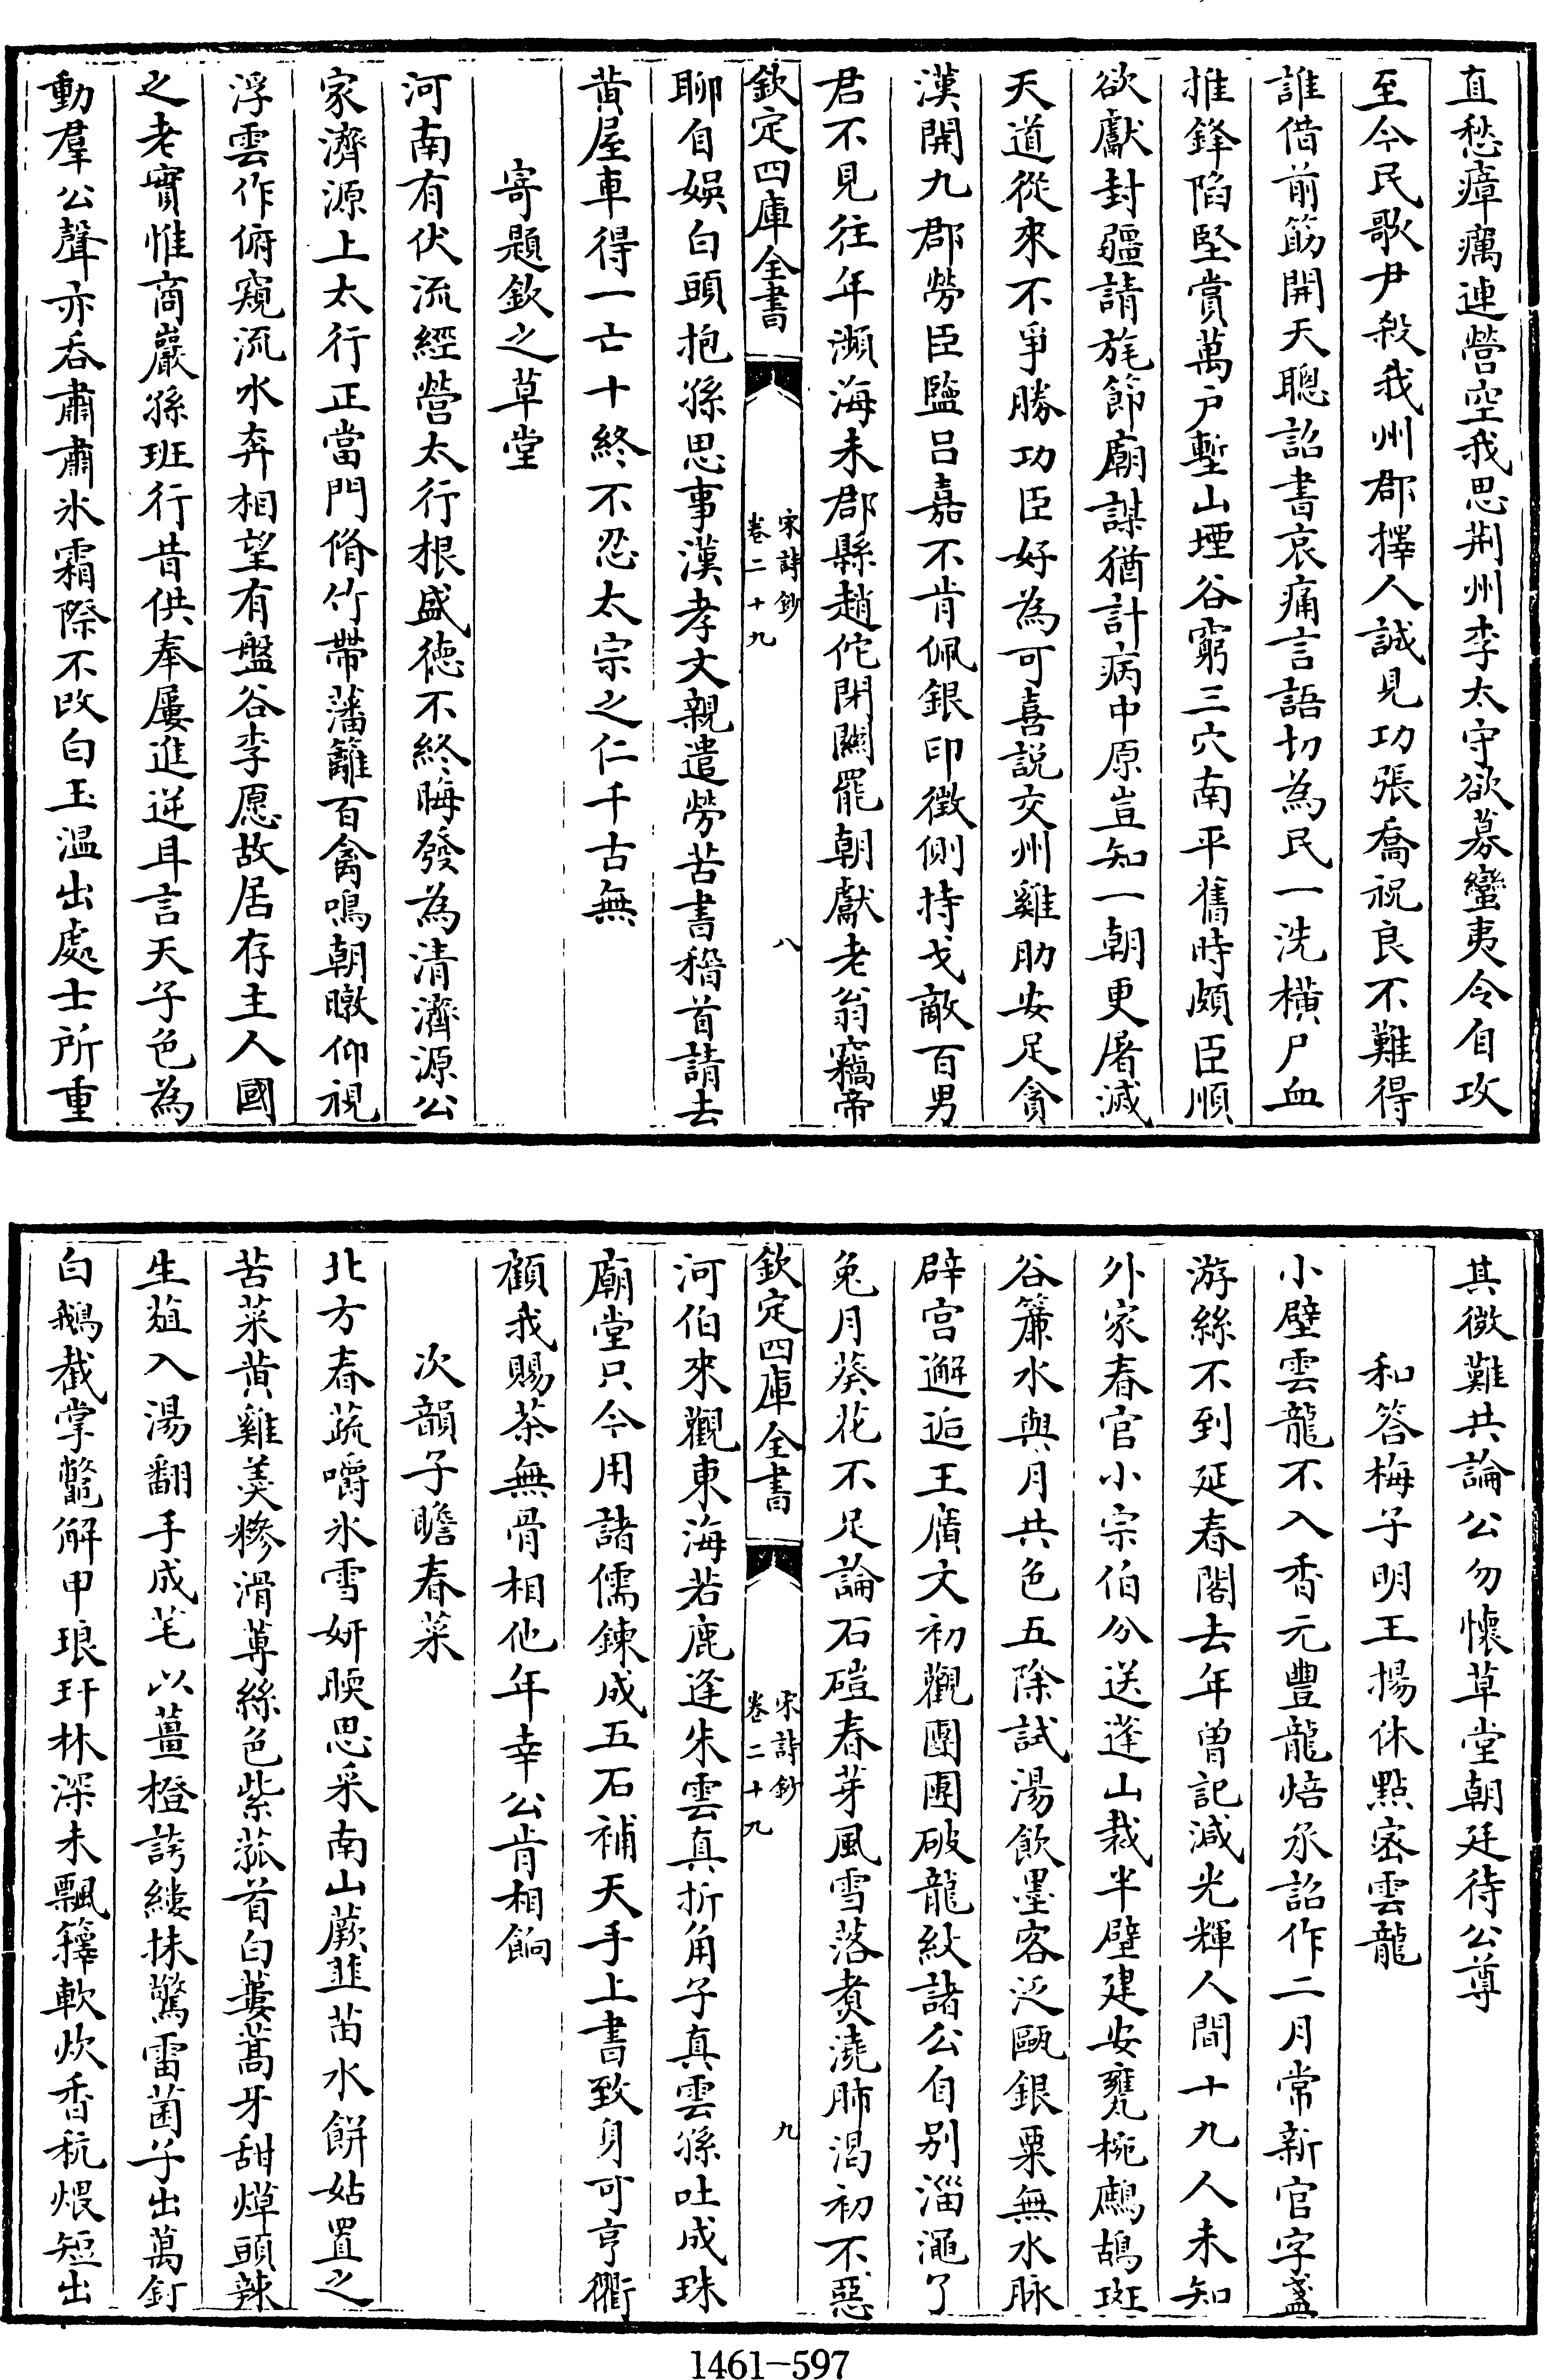 直愁瘴癘連營空我思荆州李太守欲募蠻夷令自攻
至今民歌尹殺我州郡擇人誠見功張喬祝良不難得
誰借前筯開天聰詔書哀痛言語切為民一洗橫尸血
推鋒陷堅賞萬户塹山堙谷窮三穴南平舊時頗臣順
欲獻封疆請旄節廟謀猶計病中原豈知一朝更屠滅
天道從來不爭勝功臣好為可喜説交州雞肋安足貪
漢開九郡勞臣監吕嘉不肯佩銀印徵側持戈敵百男
君不見往年瀕海未郡縣趙佗閉關罷朝獻老翁竊帝
欽定四庫全書
宋詩鈔
卷二十九
八
聊自娛白頭抱孫思事漢孝文親遣勞苦書稽首請去
黄屋車得一亡十終不忍太宗之仁千古無
寄題欽之草堂
河南有伏流經營太行根盛徳不終晦發為清濟源公
家濟源上太行正當門脩竹帶藩籬百禽鳴朝暾仰視
浮雲作俯窺流水奔相望有盤谷李愿故居存主人國
之老實惟商巖孫班行昔供奉屢進逆耳言天子色為
動羣公聲亦吞肅肅氷霜際不改白玉温出處士所重
其微難共論公勿懷草堂朝廷待公尊
和答梅子明王揚休點宻雲龍
小璧雲龍不入香元豐龍焙承詔作二月常新官字盞
游絲不到延春閣去年曾記減光輝人間十九人未知
外家春官小宗伯分送蓬山裁半璧建安甕椀鷓鴣斑
谷簾水與月共色五除試湯飲墨客泛甌銀粟無水脉
辟宫邂逅王廣文初觀團團破龍紋諸公自别淄澠了
兔月葵花不足論石磑春芽風雪落煮澆肺渴初不惡
欽定四庫全書
宋詩鈔
卷二十九
九
河伯來觀東海若鹿逢朱雲真折角子真雲孫吐成珠
廟堂只今用諸儒鍊成五石補天手上書致身可亨衢
顧我賜茶無骨相他年幸公肯相餉
次韻子瞻春菜
北方春蔬嚼氷雪妍暖思采南山蕨韭苗水餅姑置之
苦菜黄雞羮糝滑蓴絲色紫菰首白蔞蒿牙甜蔊頭辣
生葅入湯翻手成芼以薑橙誇縷抹驚雷菌子出萬釘
白鵝截掌鼈解甲琅玕林深未飄籜軟炊香秔煨短出
1461-597